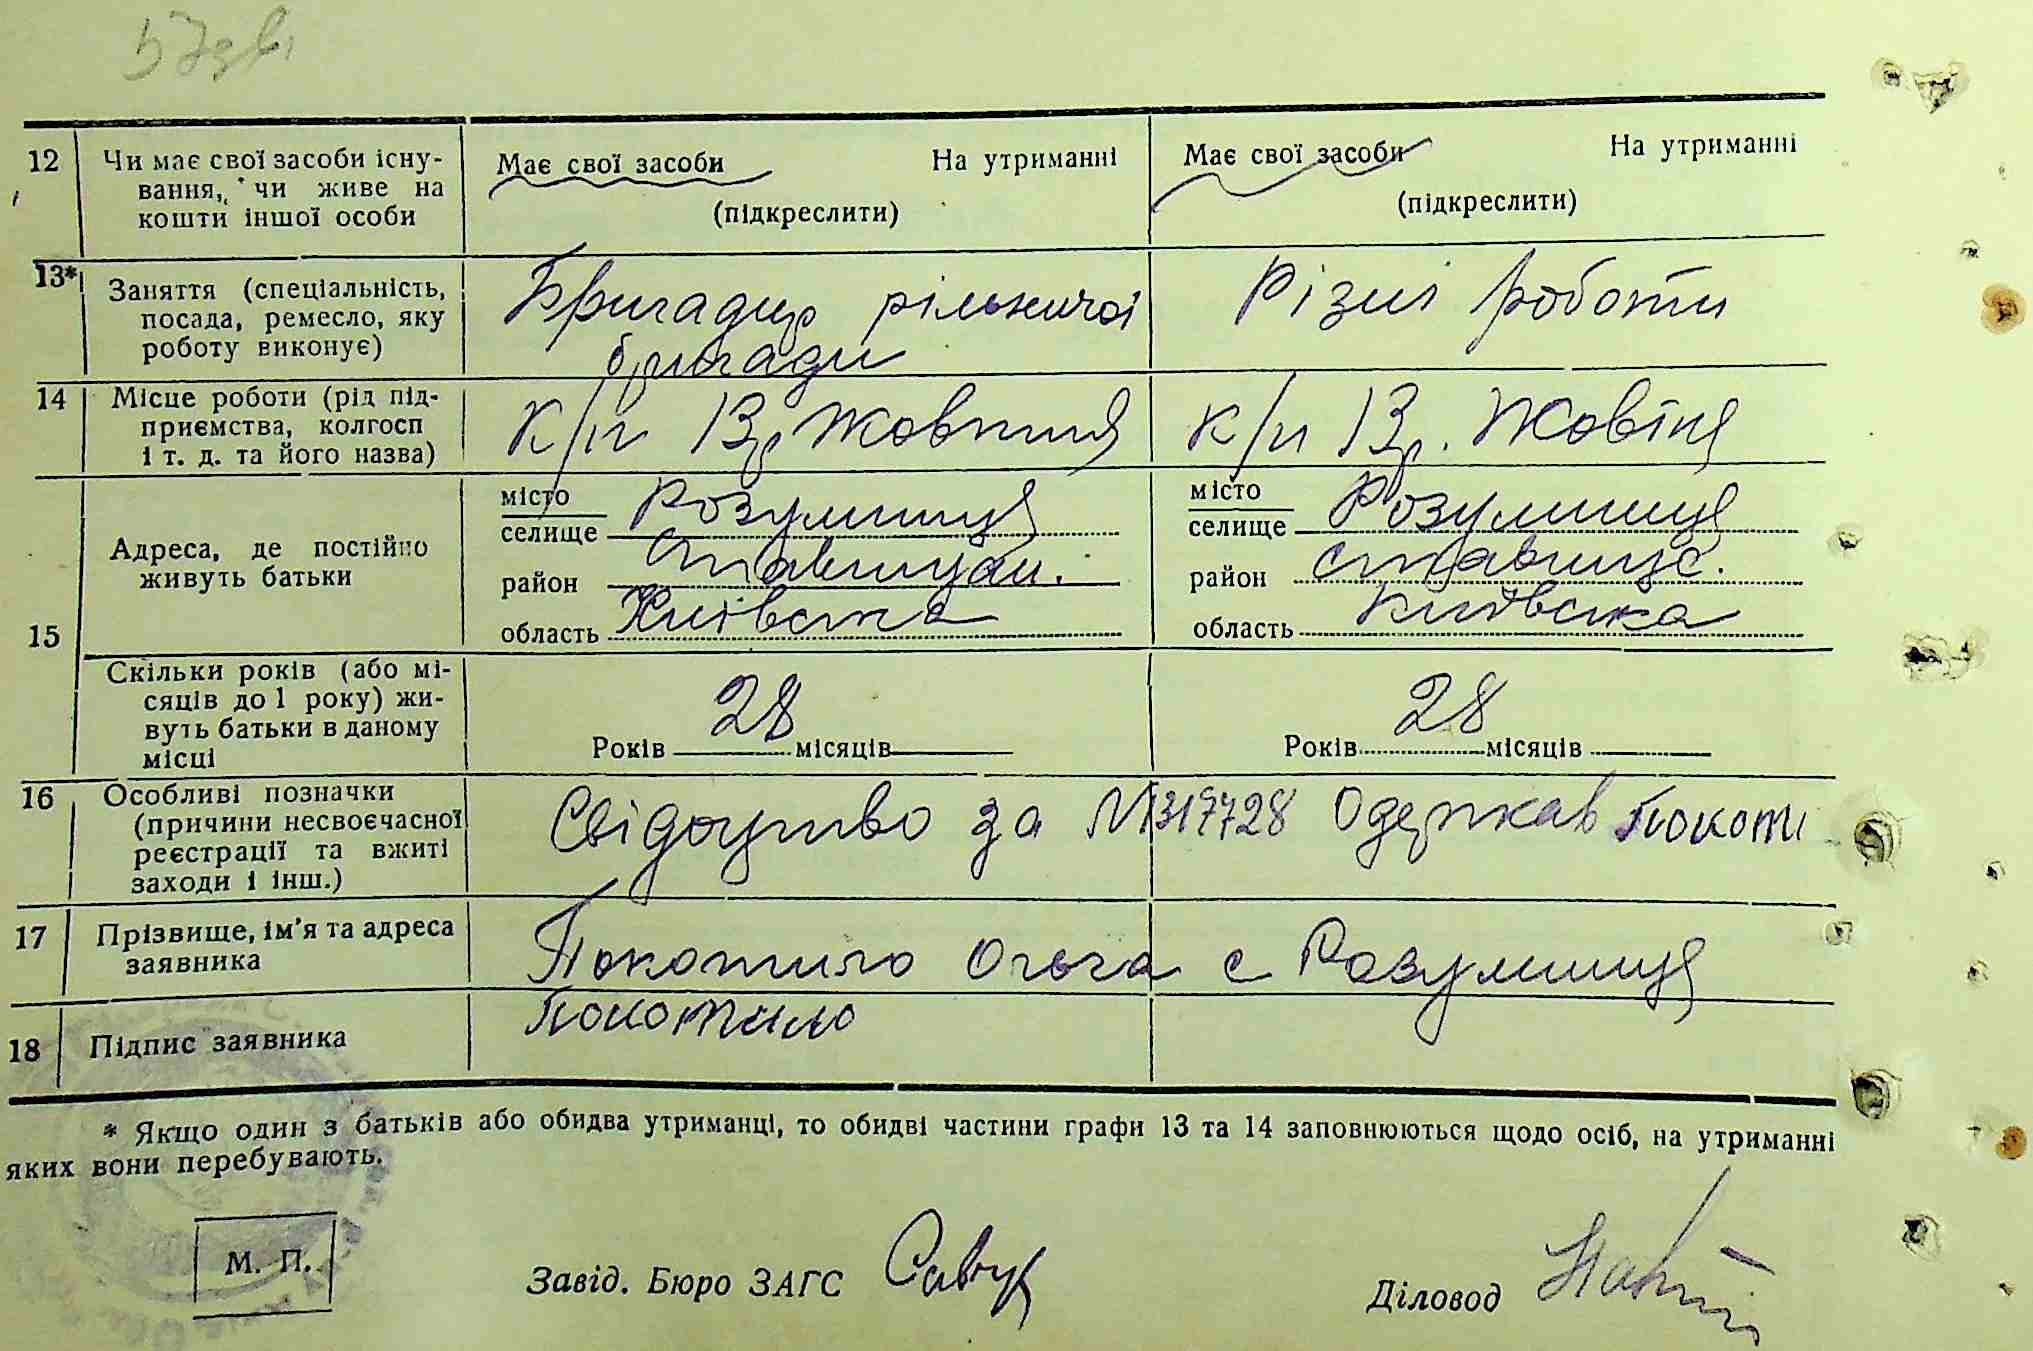 12 Чи має свої засоби існу-
вання, чи живе на
кошти іншої особи
Має свої засоби На утриманні
(підкреслити)
Має свої засоби На утриманні
(підкреслити)
13* Заняття (спеціальність,
посада, ремесло, яку
роботу виконує)
Бригадир рільничої
бригади
Різні роботи
14 Місце роботи (рід під-
приємства, колгосп
і т. д. та його назва)
к/п 13р Жовтня
к/п 13р. Жовтня
15 Адреса, де постійно
живуть батьки
місто
селище Розумниця
район Ставищан.
область Київська
місто
селище Розумниця
район Ставище.
область Київська
Скільки років (або мі-
сяців до 1 року) жи-
вуть батьки в даному
місці
Років 28 місяців
Років 28 місяців
16 Особливі позначки
(причини несвоєчасної
реєстрації та вжиті
заходи і інш.)
Свідоцтво за № 317728 Одержав Покоти
17 Прізвище, ім'я та адреса
заявника
Покотило Ольга с Розумниця
18 Підпис заявника
Покотило
* Якщо один з батьків або обидва утриманці, то обидві частини графи 13 та 14 заповнюються щодо осіб, на утриманні
яких вони перебувають.
М. П.
Завід. Бюро ЗАГС
Діловод